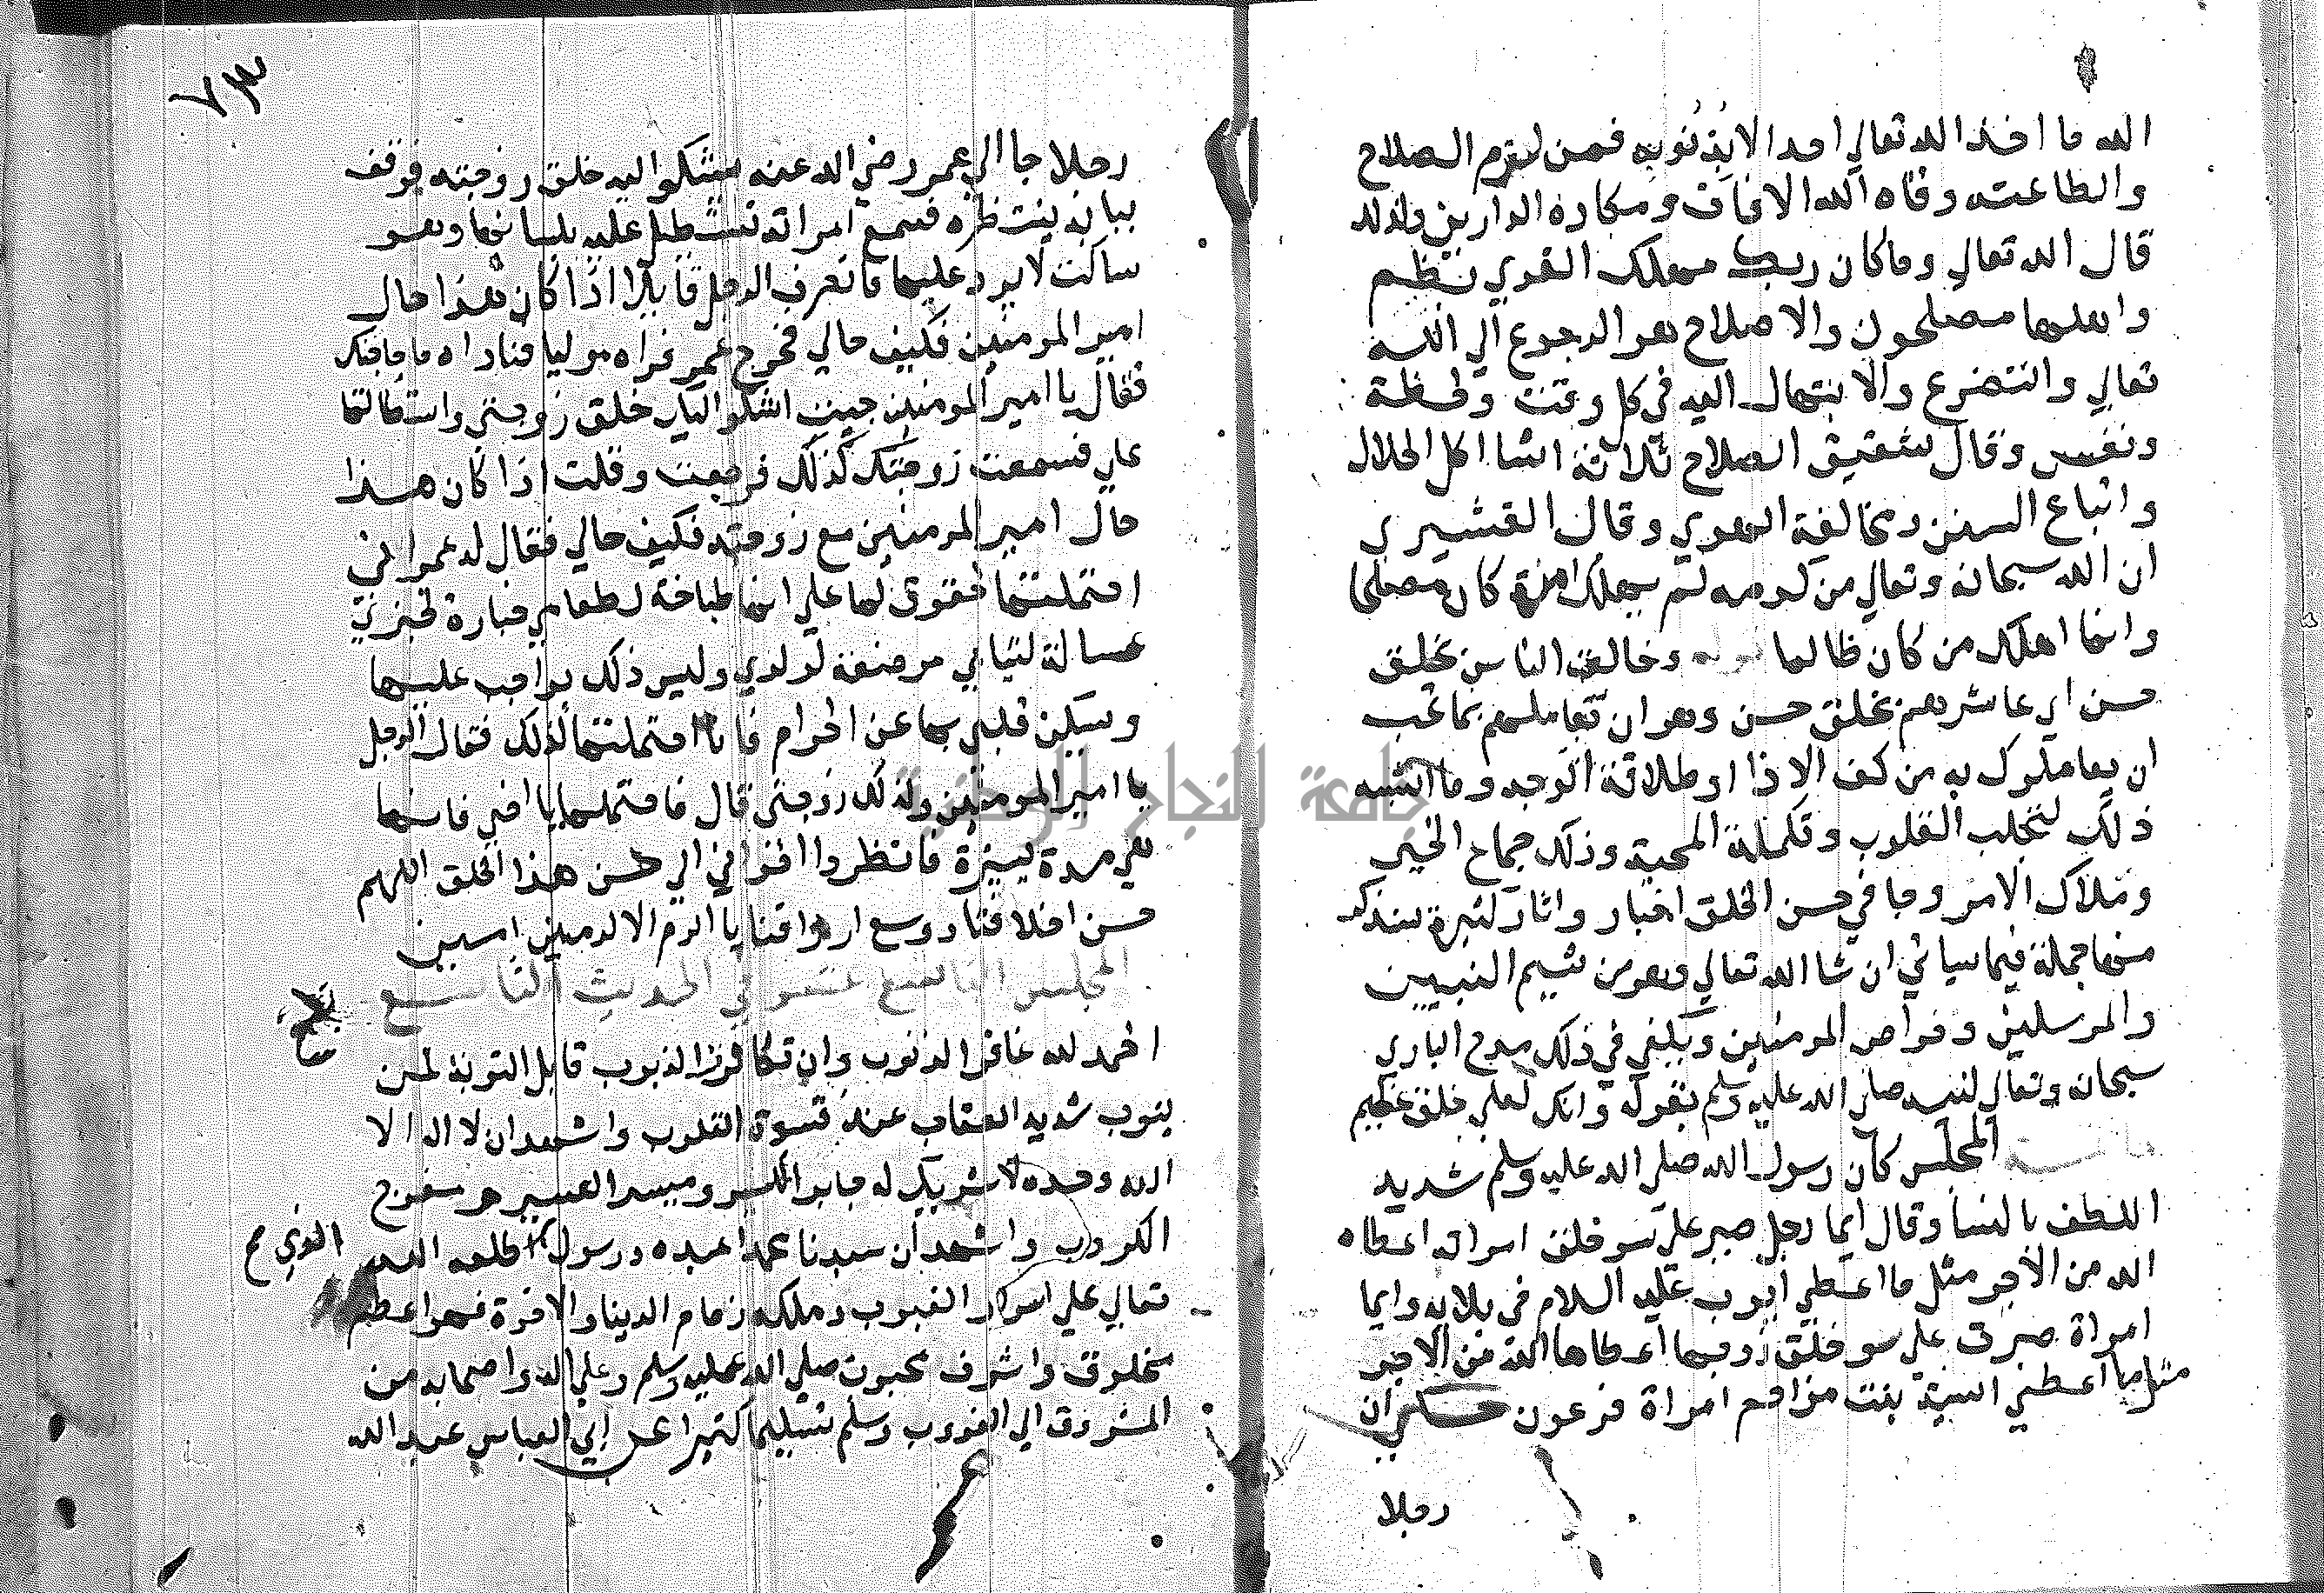 الله ما اخذ الله تعالي احدا الا بذنوبه فمن لزم الصلاح
والطاعته وقاه الله الافات ومكاره الدارين ولذلك
قال الله تعالي وما كان ربك مهلك القري بظلم
واهلها مصلحون والاصلاح هو الرجوع الي الله
تعالي والتضرع والابتهال اليه في كل وقت ولحظة
ونفس وقال شقيق الصلاح ثلاثة اشيا اكل الحلال
واتباع السنن ومخالفة الهوي وقال القشيري
ان الله سبحانه وتعالي من كرمه لم يهلك من كان مصلحا
وانما اهلك من كان ظالما قوله وخالق الناس بخلق
حسن اي عاشرهم بخلق حسن وهو ان تعاملهم بما تحب
ان يعاملوك به من كف الاذا او طلاقة الوجه وما اشبه
ذلك لتجلب القلوب وتكملة المحبة وذلك جماع الخير
وملاك الامر وجا في حسن الخلق اخبار واثار كثيرة سنذكر
منها جملة فيما سياتي ان شا الله تعالي وهو من شيم النبيين
والمرسلين وخواص المومنين ويكفي في ذلك مدح الباري
سبحانه وتعالي لنبيه صلي الله عليه وسلم بقوله وانك لعلي خلق عظيم
خاتمة المجلس كان رسول الله صلي الله عليه وسلم شديد
اللطف بالنسا وقال ايما رجل صبر علي سو خلق امراته اعطاه
الله من الاجر مثل ما اعطي ايوب عليه السلام في بلايه وايما
امراة صبرت علي سو خلق زوجها اعطاها الله من الاجر
مثل ما اعطي اسية بنت مزاحم امراة فرعون حكي ان
رجلا
٧٣
رجلا جا الي عمر رضي الله عنه يشكوا اليه خلق زوجته فوقف
ببابه ينتظره فسمع امراته تستطيل عليه بلسانها وهو
ساكت لا يرد عليها فانصرف الرجل قايلا اذا كان هذا حال
امير المومنين فكيف حالي فخرج عمر فراه موليا فناداه ما حاجتك
فقال يا امير المومنين جيت اشكوا اليك خلق زوجتي واستطالتها
علي فسمعت زوجتك كذلك فرجعت وقلت اذا كان هذا
حال امير المومنين مع زوجته فكيف حالي فقال له عمر اني
احتملتها لحقوق لها علي انها طباخة لطعامي خبازة لخبزي
غسالة لثيابي مرضعة لولدي وليس ذلك بواجب عليها
ويسكن قلبي بها عن الحرام فانا احتملتها لذلك فقال الرجل
يا امير المومنين وكذلك زوجتي قال فاحتملها يا اخي فانها
هي مدة يسيرة فانظروا اخواني الي حسن هذا الخلق اللهم
حسن اخلاقنا ووسع ارزاقنا يا اكرم الاكرمين امين
المجلس التاسع عشر في الحديث التاسع
الحمد لله غافر الذنوب وان تكاثرت الذنوب قابل التوبة لمن
يتوب شديد العقاب عند قسوة القلوب واشهد ان لا اله الا
الله وحده لا شريك له جابر الكسير وميسر العسير مفرج
الكروب واشهد ان سيدنا محمدا عبده ورسوله اطلعه الله
الذي صح
تعالي علي اسرار الغيوب وملكه زمام الدنيا والاخرة فهو اعظم
مخلوق واشرف محبوب صلي الله عليه وسلم وعلي اله واصحابه من
المشروق الي الغروب وسلم تسليما كثيرا عن ابي العباس عبد الله
جامعة النجاح الوطنية